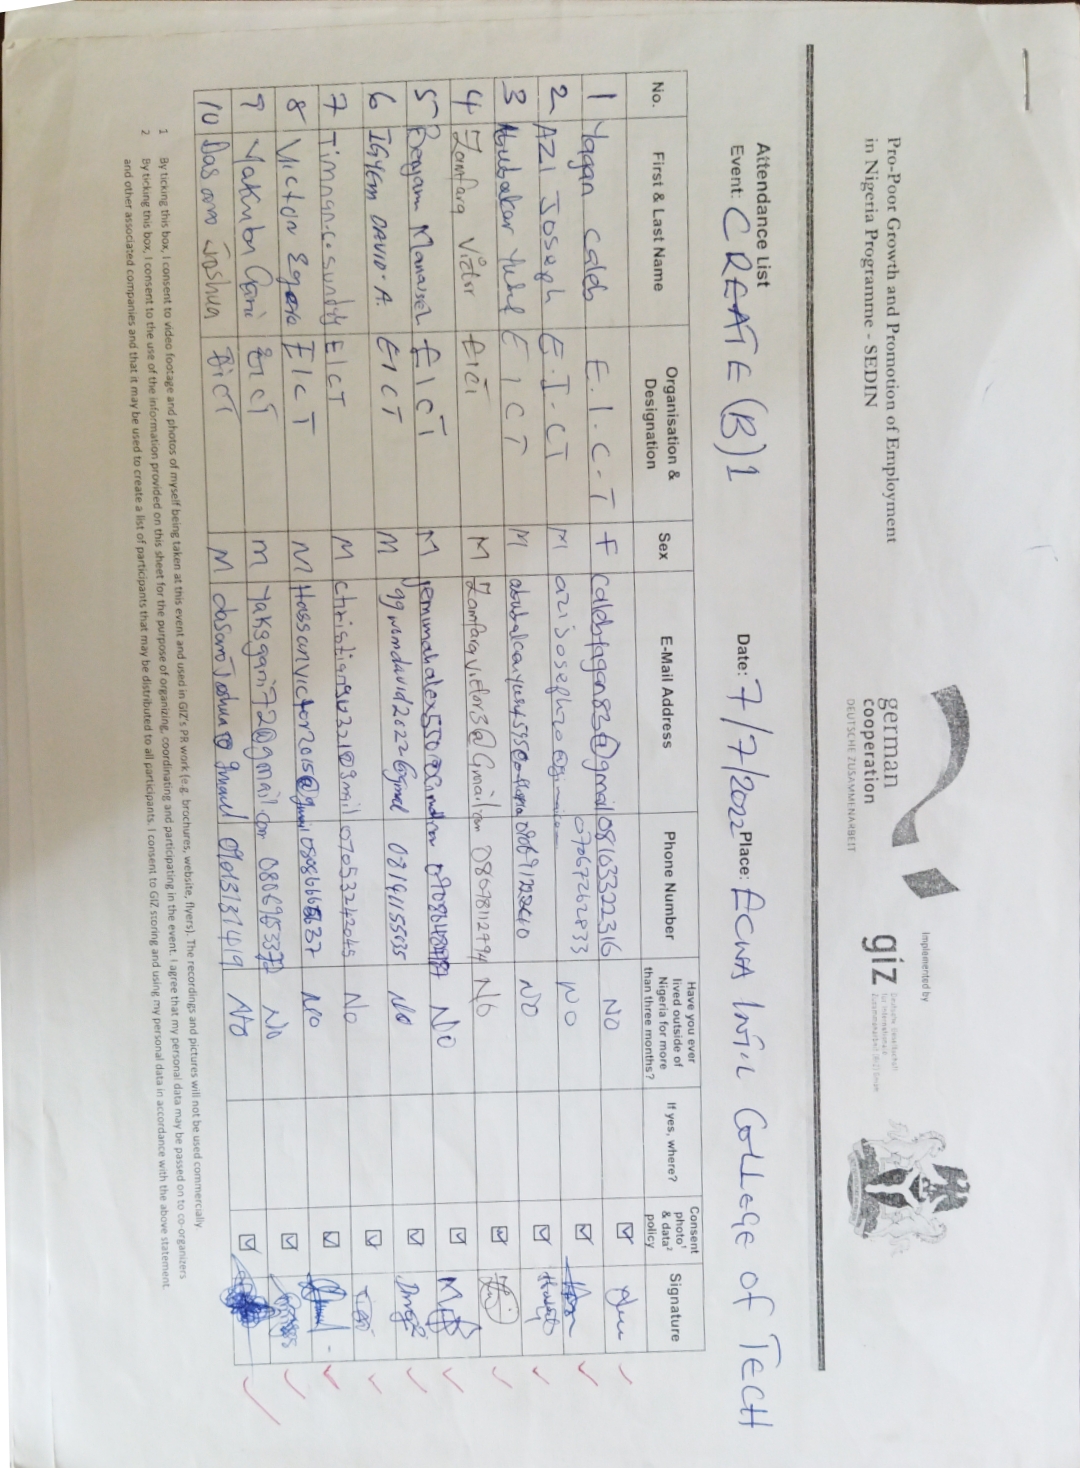 Pro-Poor Growth and Promotion of Employment
in Nigeria Programme - SEDIN
german
cooperation
DEUTSCHE ZUSAMMENARBEIT
Implemented by
giz Deutsche Gesellschaft
für Internationale
Zusammenarbeit (GIZ) GmbH
Attendance List
Event: CREATE (B) 1 Date: 7/7/2022 Place: ECWA INT'L COLLEGE OF TECH
No. First & Last Name Organisation & Designation Sex E-Mail Address Phone Number Have you ever lived outside of Nigeria for more than three months? If yes, where? Consent photo¹ & data² policy Signature
1 Yagan Caleb E.I.C.T F calebfagan83@gmail 08103322316 NO
2 AZI Joseph E.I.CT M azijoseph20 07067262833 NO
3 Abubakar Yusuf EICT M NO
4 Zamfara Victor EICT M Zamfaravictor3@Gmail.com 08078112794 NO
5 Manasseh EICT M NO
6 IGYEM DAVID.A. EICT M 08191155035 No
7 Timnan.c.sunday EICT M 07053242045 No
8 Victor EICT M Hassanvictor2015@gmail NO
9 Yakubu Gani EICT M Yaksgani72@gmail.com No
10 Dasaro Joshua EICT M dasaroJoshua@gmail 09013131419 NO
1 By ticking this box, I consent to video footage and photos of myself being taken at this event and used in GIZ's PR work (e.g. brochures, website, flyers). The recordings and pictures will not be used commercially.
2 By ticking this box, I consent to the use of the information provided on this sheet for the purpose of organizing, coordinating and participating in the event. I agree that my personal data may be passed on to co-organizers
and other associated companies and that it may be used to create a list of participants that may be distributed to all participants. I consent to GIZ storing and using my personal data in accordance with the above statement.